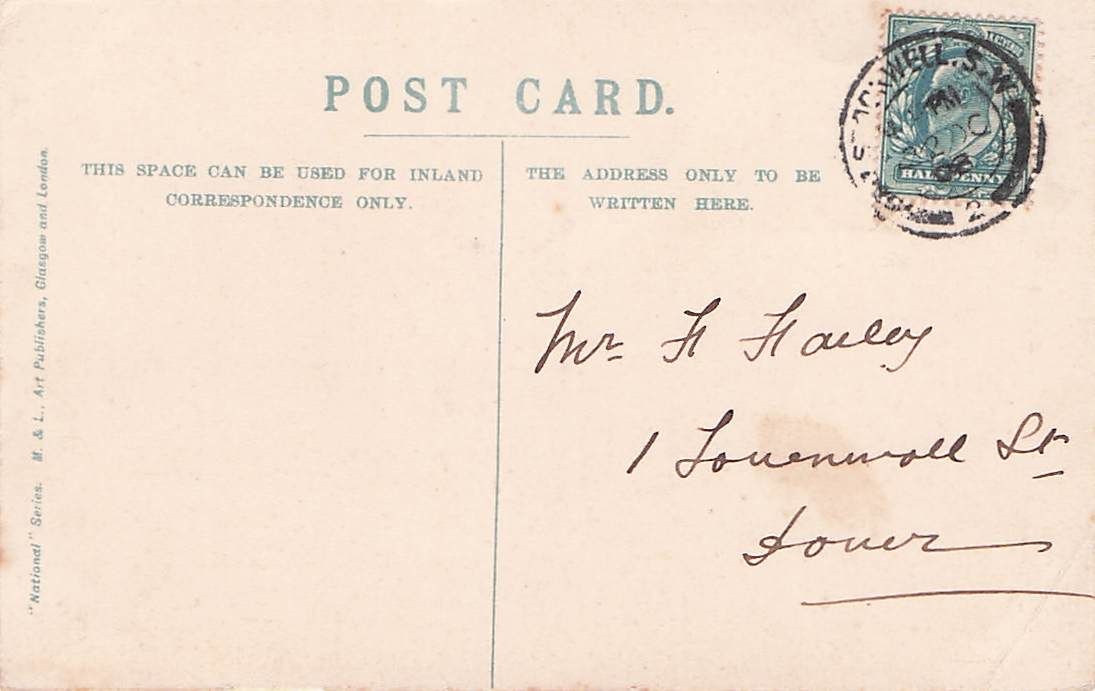 POST CARD.
THIS SPACE CAN BE USED FOR INLAND
CORRESPONDENCE ONLY.
THE ADDRESS ONLY TO BE
WRITTEN HERE.
HALFPENNY
"National" Series. M. & L., Art Publishers, Glasgow and London.
Mr
1 St
Dover